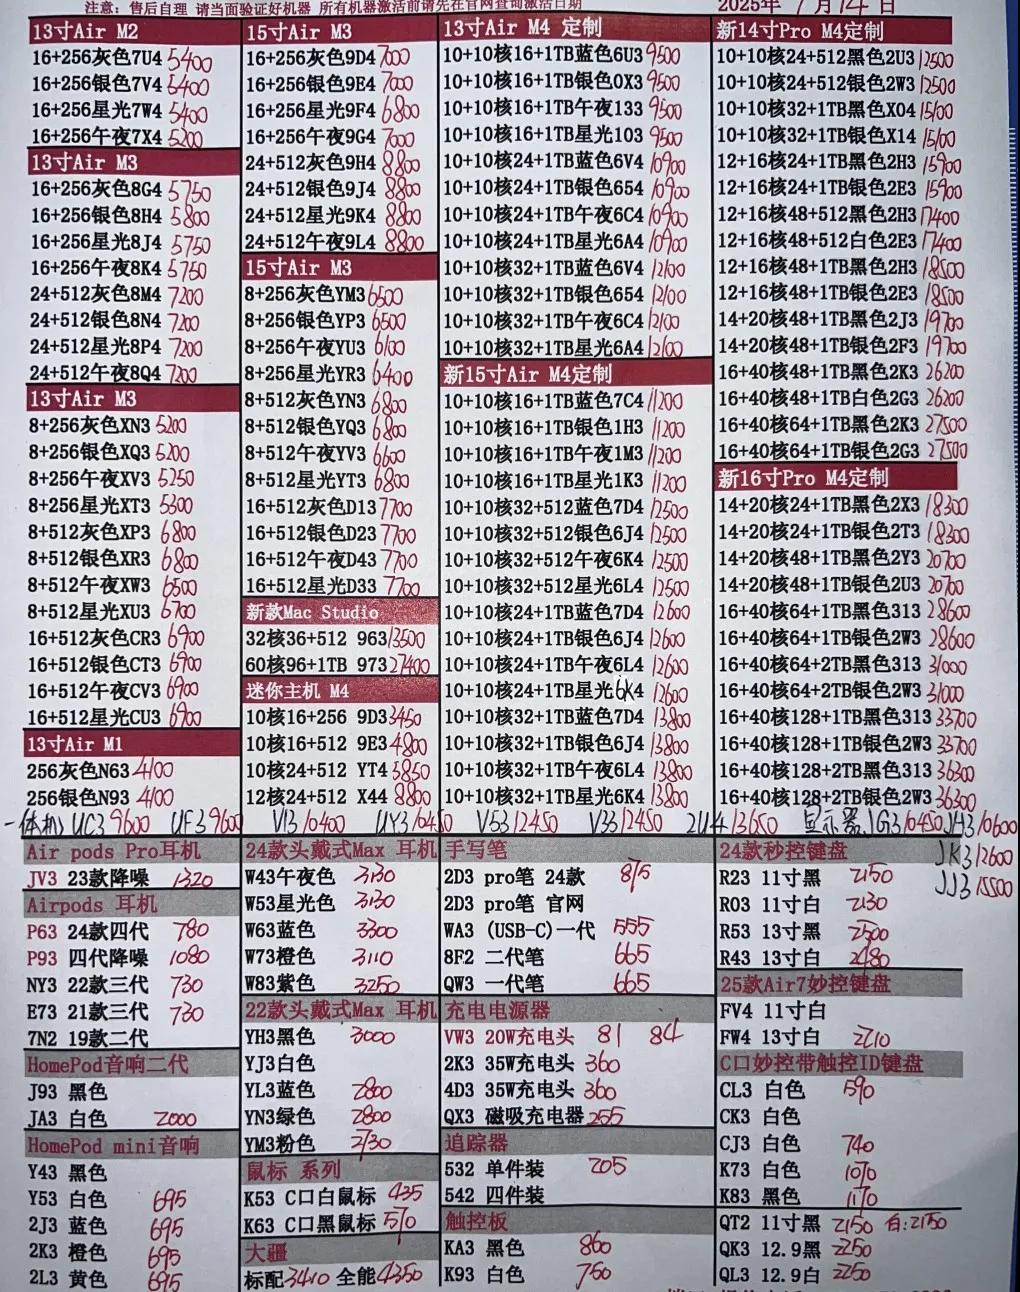 注意：售后自理 请当面验证好机器 所有机器激活前请先在官网查询激活日期
2025年 7月14日
13寸Air M2
16+256灰色7U4 5400
16+256银色7V4 5400
16+256星光7W4 5400
16+256午夜7X4 5200
13寸Air M3
16+256灰色8G4 5750
16+256银色8H4 5800
16+256星光8J4 5750
16+256午夜8K4 5750
24+512灰色8M4 7200
24+512银色8N4 7200
24+512星光8P4 7200
24+512午夜8Q4 7200
13寸Air M3
8+256灰色XN3 5200
8+256银色XQ3 5200
8+256午夜XV3 5250
8+256星光XT3 5300
8+512灰色XP3 6800
8+512银色XR3 6800
8+512午夜XW3 6500
8+512星光XU3 6700
16+512灰色CR3 6900
16+512银色CT3 6900
16+512午夜CV3 6900
16+512星光CU3 6900
13寸Air M1
256灰色N63 4100
256银色N93 4100
15寸Air M3
16+256灰色9D4 7000
16+256银色9E4 7000
16+256星光9F4 6800
16+256午夜9G4 7000
24+512灰色9H4 8800
24+512银色9J4 8800
24+512星光9K4 8800
24+512午夜9L4 8800
15寸Air M3
8+256灰色YM3 6500
8+256银色YP3 6500
8+256午夜YU3 6100
8+256星光YR3 6400
8+512灰色YN3 6800
8+512银色YQ3 6800
8+512午夜YV3 6600
8+512星光YT3 6800
16+512灰色D13 7700
16+512银色D23 7700
16+512午夜D43 7700
16+512星光D33 7700
新款Mac Studio
32核36+512 963 13500
60核96+1TB 973 27400
迷你主机 M4
10核16+256 9D3 3450
10核16+512 9E3 4800
10核24+512 YT4 5850
12核24+512 X44 8800
13寸Air M4 定制
10+10核16+1TB蓝色6U3 9500
10+10核16+1TB银色0X3 9500
10+10核16+1TB午夜133 9500
10+10核16+1TB星光103 9500
10+10核24+1TB蓝色6V4 10900
10+10核24+1TB银色654 10900
10+10核24+1TB午夜6C4 10900
10+10核24+1TB星光6A4 10900
10+10核32+1TB蓝色6V4 12100
10+10核32+1TB银色654 12100
10+10核32+1TB午夜6C4 12100
10+10核32+1TB星光6A4 12100
新15寸Air M4定制
10+10核16+1TB蓝色7C4 11200
10+10核16+1TB银色1H3 11200
10+10核16+1TB午夜1M3 11200
10+10核16+1TB星光1K3 11200
10+10核32+512蓝色7D4 12500
10+10核32+512银色6J4 12500
10+10核32+512午夜6K4 12500
10+10核32+512星光6L4 12500
10+10核24+1TB蓝色7D4 12600
10+10核24+1TB银色6J4 12600
10+10核24+1TB午夜6L4 12600
10+10核24+1TB星光6K4 12600
10+10核32+1TB蓝色7D4 13800
10+10核32+1TB银色6J4 13800
10+10核32+1TB午夜6L4 13800
10+10核32+1TB星光6K4 13800
新14寸Pro M4定制
10+10核24+512黑色2U3 12500
10+10核24+512银色2W3 12500
10+10核32+1TB黑色X04 15100
10+10核32+1TB银色X14 15100
12+16核24+1TB黑色2H3 15900
12+16核24+1TB银色2E3 15900
12+16核48+512黑色2H3 17400
12+16核48+512白色2E3 17400
12+16核48+1TB黑色2H3 18500
12+16核48+1TB银色2E3 18500
14+20核48+1TB黑色2J3 19700
14+20核48+1TB银色2F3 19700
16+40核48+1TB黑色2K3 26200
16+40核48+1TB白色2G3 26200
16+40核64+1TB黑色2K3 27500
16+40核64+1TB银色2G3 27500
新16寸Pro M4定制
14+20核24+1TB黑色2X3 18300
14+20核24+1TB银色2T3 18300
14+20核48+1TB黑色2Y3 20700
14+20核48+1TB银色2U3 20700
16+40核64+1TB黑色313 28600
16+40核64+1TB银色2W3 28600
16+40核64+2TB黑色313 31000
16+40核64+2TB银色2W3 31000
16+40核128+1TB黑色313 33700
16+40核128+1TB银色2W3 33700
16+40核128+2TB黑色313 36300
16+40核128+2TB银色2W3 36300
一体机 UC3 9600 UF3 9600 V13 10400 UY3 10450 V53 12450 V33 12450 2U4 13650 显示器 JG3 10450 JH3 10600
JK3 12600
JJ3 15500
Air pods Pro耳机
JV3 23款降噪 1320
Airpods 耳机
P63 24款四代 780
P93 四代降噪 1080
NY3 22款三代 730
E73 21款三代 730
7N2 19款二代
HomePod音响二代
J93 黑色
JA3 白色 2000
HomePod mini音响
Y43 黑色
Y53 白色 695
2J3 蓝色 695
2K3 橙色 695
2L3 黄色 695
24款头戴式Max 耳机
W43午夜色 3130
W53星光色 3130
W63蓝色 3300
W73橙色 3110
W83紫色 3250
22款头戴式Max 耳机
YH3黑色 3000
YJ3白色
YL3蓝色 2800
YN3绿色 2800
YM3粉色 2730
鼠标 系列
K53 C口白鼠标 435
K63 C口黑鼠标 570
大疆
标配3410 全能4350
手写笔
2D3 pro笔 24款 875
2D3 pro笔 官网
WA3 (USB-C)一代 555
8F2 二代笔 665
QW3 一代笔 665
充电电源器
VW3 20W充电头 81 84
2K3 35W充电头 360
4D3 35W充电头 360
QX3 磁吸充电器 255
追踪器
532 单件装 205
542 四件装
触控板
KA3 黑色 860
K93 白色 760
24款秒控键盘
R23 11寸黑 2150
R03 11寸白 2130
R53 13寸黑 2500
R43 13寸白 2480
25款Air7妙控键盘
FV4 11寸白
FW4 13寸白 2210
C口妙控带触控ID键盘
CL3 白色 590
CK3 白色
CJ3 白色 740
K73 白色 1070
K83 黑色 1170
QT2 11寸黑 2150 白:2150
QK3 12.9黑 2250
QL3 12.9白 2250